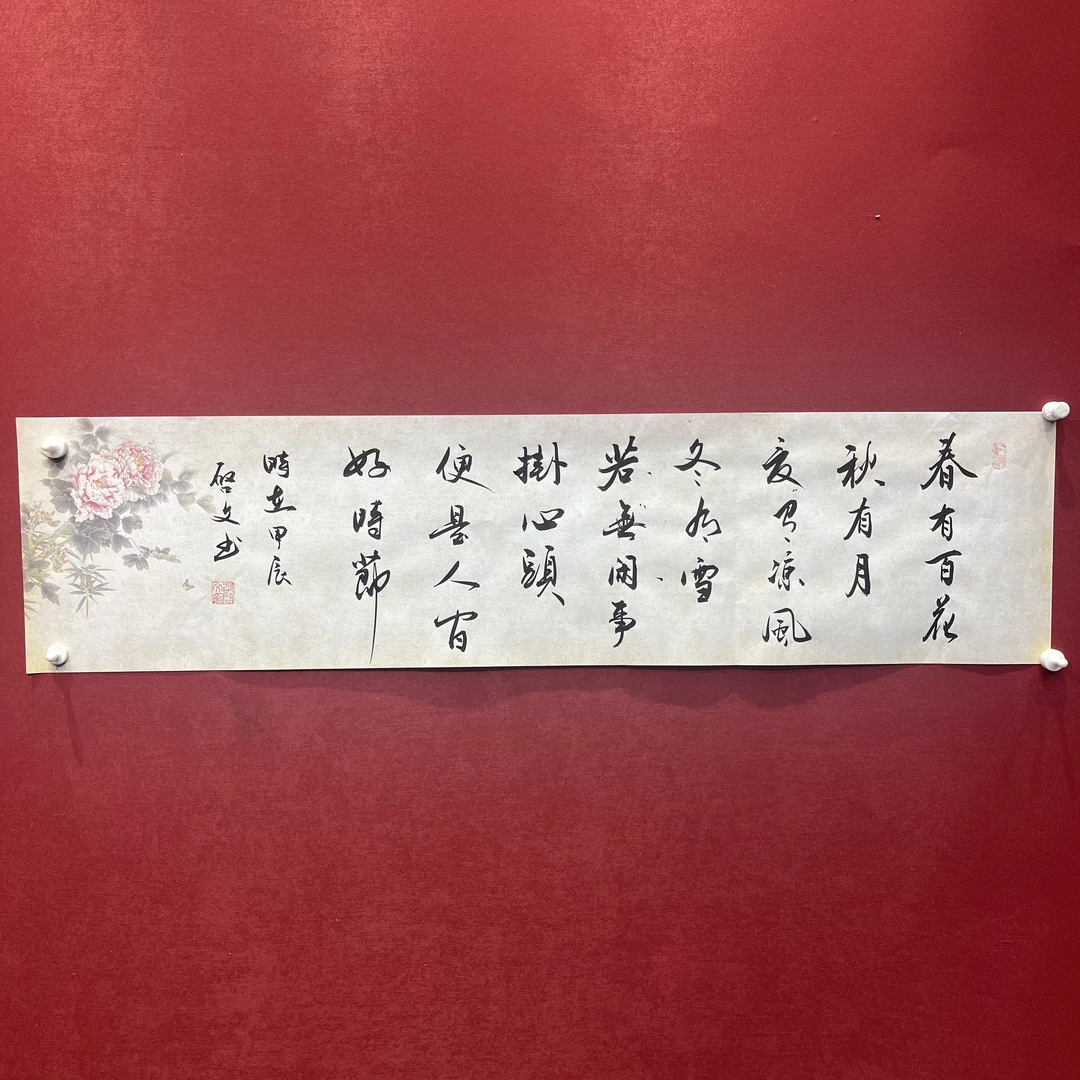 春有百花
秋有月
夏有涼風
冬有雪
若無閑事
掛心頭
便是人間
好時節
時在甲辰
啓文书